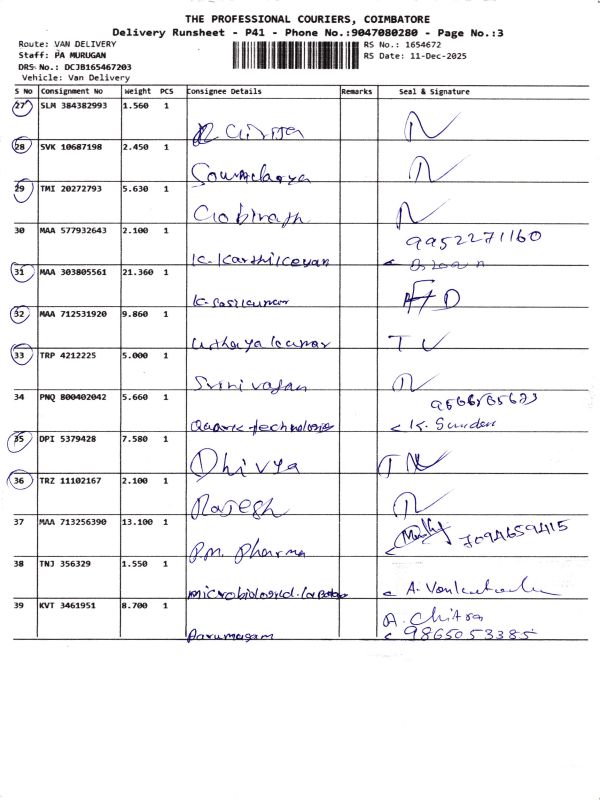 THE PROFESSIONAL COURIERS, COIMBATORE
Delivery Runsheet - P41 - Phone No.:9047080280 - Page No.:3
Route: VAN DELIVERY
Staff: PA MURUGAN
DRS No.: DCJB165467203
Vehicle: Van Delivery
RS No.: 1654672
RS Date: 11-Dec-2025
S No Consignment No Weight PCS Consignee Details Remarks Seal & Signature
27 SLM 384382993 1.560 1
28 SVK 10687198 2.450 1
Soundarya
29 TMI 20272793 5.630 1
Gobinath
30 MAA 577932643 2.100 1 9952271160
K. Karthikeyan
31 MAA 303805561 21.360 1
K. Sasikumar
32 MAA 712531920 9.860 1
Uthayakumar
33 TRP 4212225 5.000 1
Srinivasan
34 PNQ 800402042 5.660 1
technologies K. Sundar
35 DPI 5379428 7.580 1
Dhivya
36 TRZ 11102167 2.100 1
Rajesh
37 MAA 713256390 13.100 1 7094659415
P.M. Pharma
38 TNJ 356329 1.550 1
39 KVT 3461951 8.700 1 A. Chitra
Aarumugam 9865053385